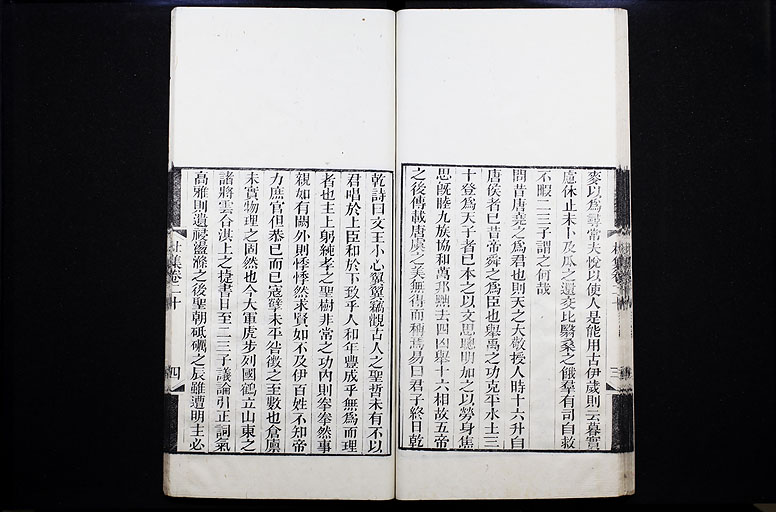 麥以爲尋常夫悅以使人是能用古伊歲則云暮實
慮休止未卜及瓜之還交比翳桑之餓羣有司自救
不暇二三子謂之何哉
問昔唐堯之爲君也則天之大敬授人時十六升自
唐侯者已昔帝舜之爲臣也舉禹之功克平水土三
十登爲天子者已本之以文思聰明加之以勞身焦
思旣睦九族協和萬邦黜去四凶舉十六相故五帝
之後傳載唐虞之美無得而稱焉易曰君子終日乾
乾詩曰文王小心翼翼竊觀古人之聖哲未有不以
君唱於上臣和於下致乎人和年豐成乎無爲而理
者也主上躬純孝之聖樹非常之功內則拳拳然事
親如有闕外則悸悸然求賢如不及伊百姓不知帝
力庶官但恭已而已寇孽未平咎徵之至數也倉廩
未實物理之固然也今大軍虎步列國鶴立山東之
諸將雲合淇上之捷書日至二三子議論引正詞氣
高雅則遺祲盪滌之後聖朝砥礪之辰雖遭明主必
杜集卷二十
三
杜集卷二十
四